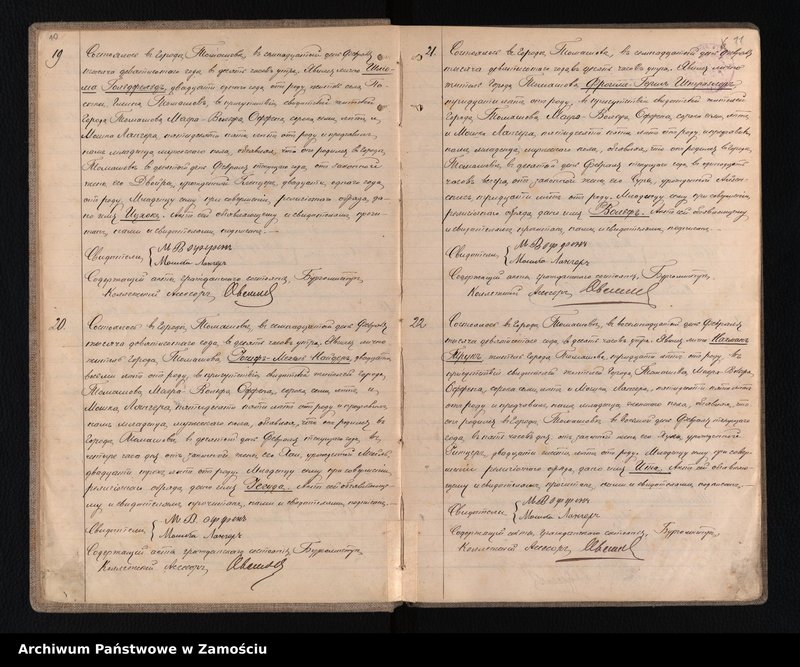 10
19
Состоялось въ городѣ Томашовѣ, въ семнадцатый день Февраля
тысяча девятисотаго года въ десять часовъ утра. Явился лично Шлё-
ма Гольдфельдъ, двадцати одного года отъ роду, житель
Томашовъ, въ присутствіи свидѣтелей жителей
города Томашова Майра-Вольфа Оффена, сорока семи лѣтъ, и
Мошка Лангера, пятидесяти пяти лѣтъ отъ роду и предъявилъ
намъ младенца мужескаго пола, объявляя, что онъ родился въ городѣ
Томашовѣ въ десятый день Февраля текущаго года, отъ законной
жены его Двойры, урожденной двадцати одного года
отъ роду. Младенцу сему при совершеніи религіознаго обряда, да-
но имя Ицхокъ. Актъ сей объявляющему и свидѣтелямъ прочи-
танъ, нами и свидѣтелями подписанъ.
Свидѣтели { М В Оффенъ
Мошка Лангеръ
Содержащій акты гражданскаго состоянія, Бургомистръ,
Коллежскій Асессоръ,
20
Состоялось въ городѣ Томашовѣ, въ семнадцатый день Февраля
тысяча девятисотаго года, въ десять часовъ утра. Явился лично
житель города Томашова, Іосифъ-Мехель Найдеръ, двадцати
восьми лѣтъ отъ роду, въ присутствіи свидѣтелей жителей города
Томашова Майра-Вольфа Оффена, сорока семи лѣтъ и
Мошка Лангера, пятидесяти пяти лѣтъ отъ роду и предъявилъ
намъ младенца мужескаго пола, объявляя, что онъ родился въ
городѣ Томашовѣ, въ десятый день Февраля текущаго года, въ
четыре часа дня, отъ законной жены, его Хаи, урожденной
двадцати трехъ лѣтъ отъ роду. Младенцу сему при совершеніи
религіознаго обряда, дано имя Актъ сей объявляюще-
му и свидѣтелямъ прочитанъ, нами и свидѣтелями подписанъ.
Свидѣтели { М В Оффенъ
Мошка Лангеръ
Содержащій акты гражданскаго состоянія Бургомистръ,
Коллежскій Асессоръ,
11
21.
Состоялось въ городѣ Томашовѣ, въ семнадцатый день Февраля
тысяча девятисотаго года въ десять часовъ утра. Явился лично
житель города Томашова,
тридцати лѣтъ отъ роду, въ присутствіи свидѣтелей жителей
города Томашова, Майра-Вольфа Оффена, сорока семи лѣтъ,
и Мошка Лангера, пятидесяти пяти лѣтъ отъ роду, и предъявилъ
намъ младенца, мужескаго пола, объявляя, что онъ родился въ городѣ
Томашовѣ, въ десятый день Февраля текущаго года, въ
часовъ вечера, отъ законной жены его Суры, урожденной
тридцати лѣтъ отъ роду. Младенцу сему, при совершеніи
религіознаго обряда, дано имя Вольфъ. Актъ сей объявляющему
и свидѣтелямъ прочитанъ, нами и свидѣтелями подписанъ.
Свидѣтели { М Воффенъ
Мошка Лангеръ
Содержащій акты гражданскаго состоянія, Бургомистръ,
Коллежскій Асессоръ,
22
Состоялось въ городѣ Томашовѣ, въ восемнадцатый день Февраля
тысяча девятисотаго года, въ десять часовъ утра. Явился лично
житель города Томашова, тридцати лѣтъ отъ роду, въ
присутствіи свидѣтелей жителей города Томашова Майра-Вольфа
Оффена, сорока семи лѣтъ и Мошка Лангера, пятидесяти пяти лѣтъ
отъ роду и предъявилъ намъ младенца женскаго пола, объявляя, что
родился въ городѣ Томашовѣ, въ день Февраля текущаго
года, въ пять часовъ дня, отъ законной жены, его урожденной
двадцати лѣтъ, отъ роду. Младенцу сему при совер-
шеніи религіознаго обряда, дано имя Актъ сей объявляю-
щему и свидѣтелямъ, прочитанъ, нами и свидѣтелями подписанъ.
Свидѣтели { М Воффенъ
Мошка Лангеръ
Содержащій акты гражданскаго состоянія, Бургомистръ,
Коллежскій Асессоръ,
Archiwum Państwowe w Zamościu